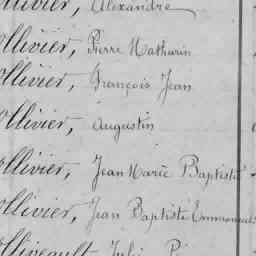 Ollivier, Alexandre
Ollivier, Pierre Mathurin
Ollivier, François Jean
Ollivier, Augustin
Ollivier, Jean Marie Baptiste
Ollivier, Jean Baptiste Emmanuel
Olliveault, Julien